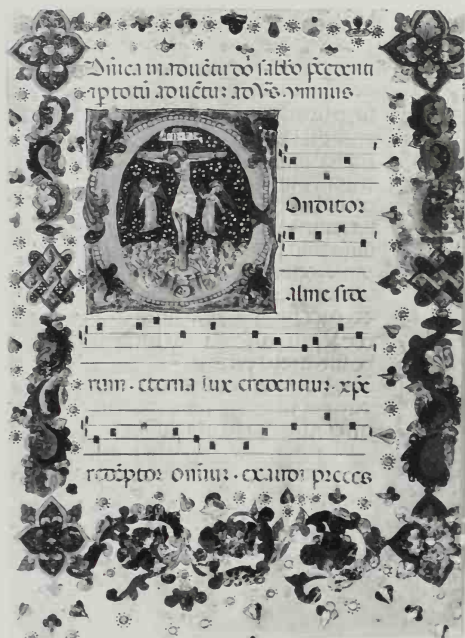 Dn̄ica in aduētu dn̄i sabbo p̄cedenti
⁊ p̄ totū aduētuȝ ad vs̄. ymnus
Onditor
alme side
rum · eterna lux credentiuȝ · xp̄e
redēptor oīuȝ · exaudi preces